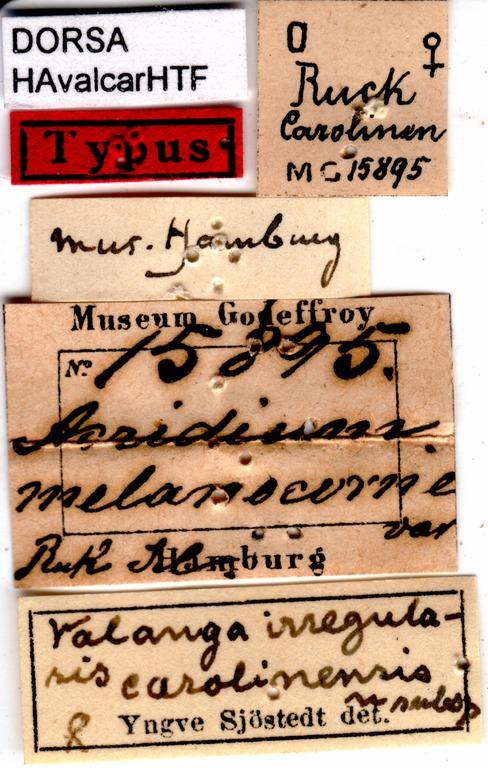 DORSA
HAvalcarHTF
Typus
♀
Ruck
Carolinen
MG 15895
Mus. Hamburg
Museum Godeffroy
No. 15895.
Acridium
melanocorne
var
Ruk
Hamburg
Valanga irregula-
ris carolinensis
n subsp
Yngve Sjöstedt det.